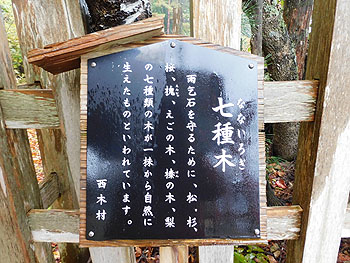 七種木
なないろぎ
雨乞石を守るために、松、杉、
桜、桃、えごの木、榛の木、梨
の七種類の木が一株から自然に
生えたものといわれています。
西木村